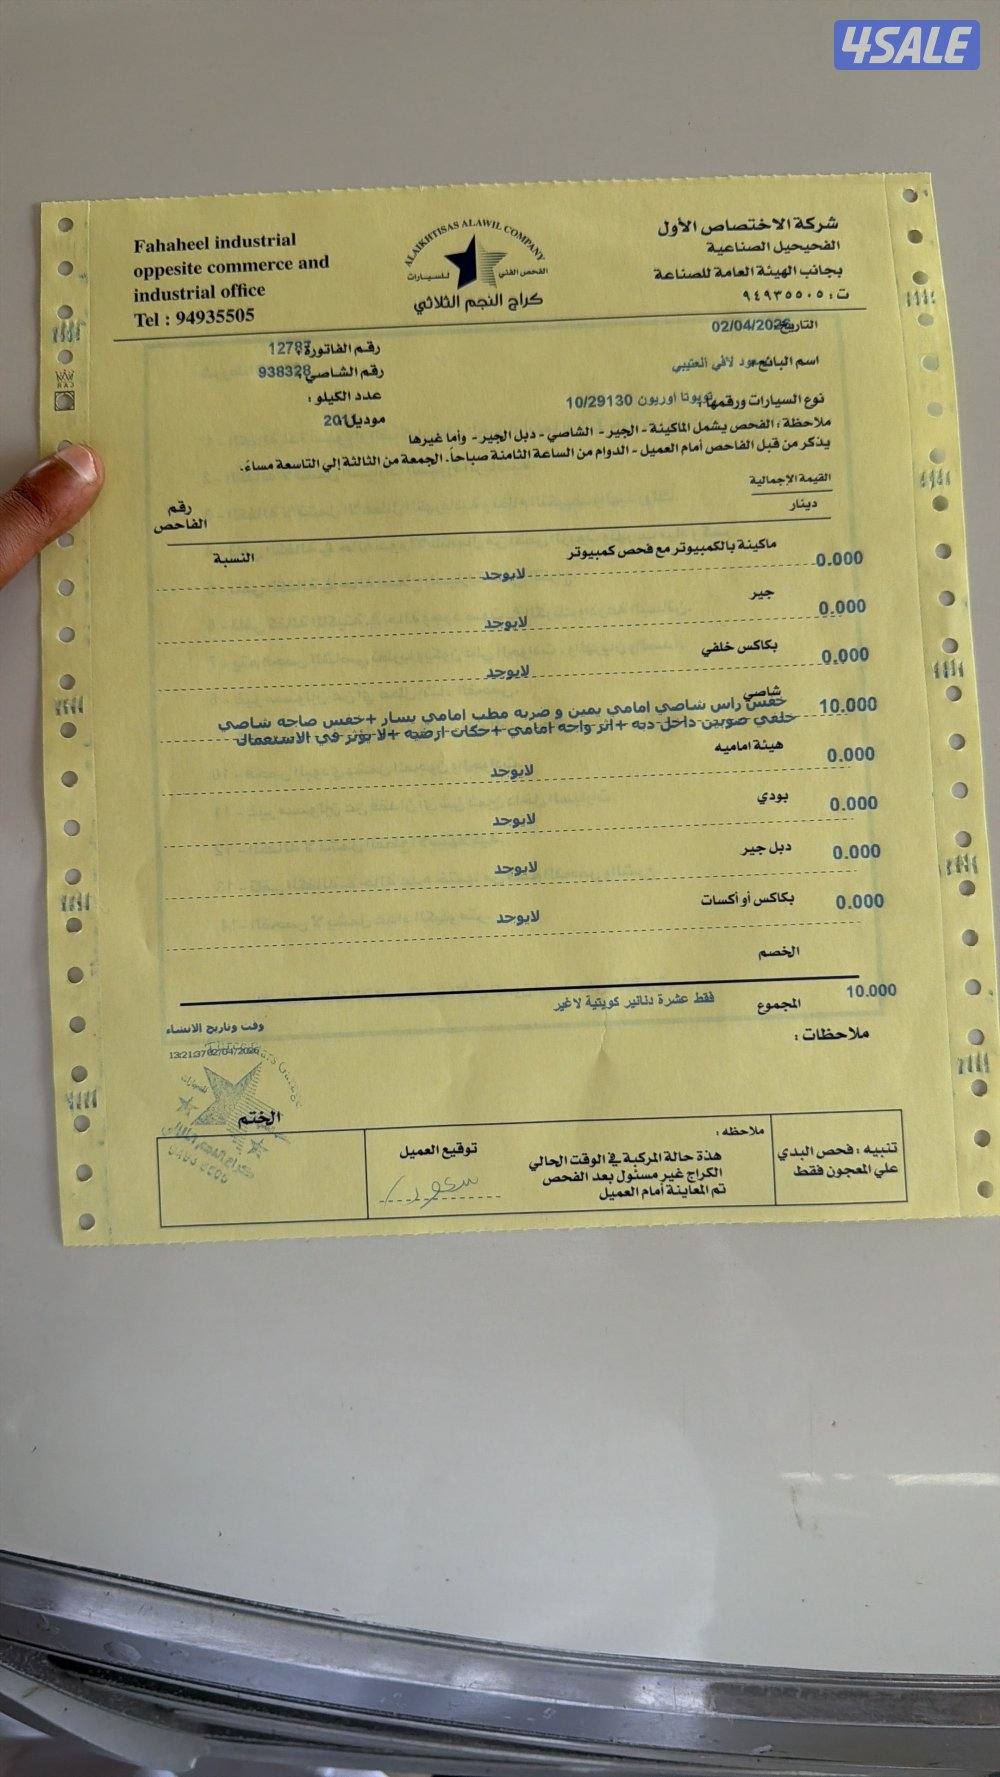 4SALE
Fahaheel industrial
oppesite commerce and
industrial office
Tel : 94935505
ALAIKHTISAS ALAWIL COMPANY
الفحص الفني للسيارات
كراج النجم الثلاثي
شركة الاختصاص الأول
الفحيحيل الصناعية
بجانب الهيئة العامة للصناعة
ت : ٩٤٩٣٥٥٠٥
التاريخ 02/04/2026
رقم الفاتورة : 12787
اسم البائع لافي العتيبي
رقم الشاصي : 938328
نوع السيارات ورقمها : تويوتا اوريون 10/29130
عدد الكيلو :
موديل 2011
ملاحظة : الفحص يشمل الماكينة - الجير - الشاصي - دبل الجير - وأما غيرها
يذكر من قبل الفاحص أمام العميل - الدوام من الساعة الثامنة صباحاً - الجمعة من الثالثة إلي التاسعة مساءً.
القيمة الإجمالية
دينار
رقم
الفاحص
النسبة
ماكينة بالكمبيوتر مع فحص كمبيوتر
0.000
لايوجد
جير
0.000
لايوجد
بكاكس خلفي
0.000
لايوجد
شاصي
10.000
خفس راس شاصي امامي يمين و ضربه مطب امامي يسار +خفس صاجه شاصي
خلفي صوبين داخل دبه +اثر واجه امامي +حكات ارضيه +لا يؤثر في الاستعمال
هيئة اماميه
0.000
لايوجد
بودي
0.000
لايوجد
دبل جير
0.000
لايوجد
بكاكس أو أكسات
0.000
لايوجد
الخصم
المجموع
10.000
فقط عشرة دنانير كويتية لاغير
ملاحظات :
وقت وتاريخ الانشاء
13:21:37 02/04/2026
الختم
تنبيه : فحص البدي
علي المعجون فقط
ملاحظه :
هذة حالة المركبة في الوقت الحالي
الكراج غير مسئول بعد الفحص
تم المعاينة أمام العميل
توقيع العميل